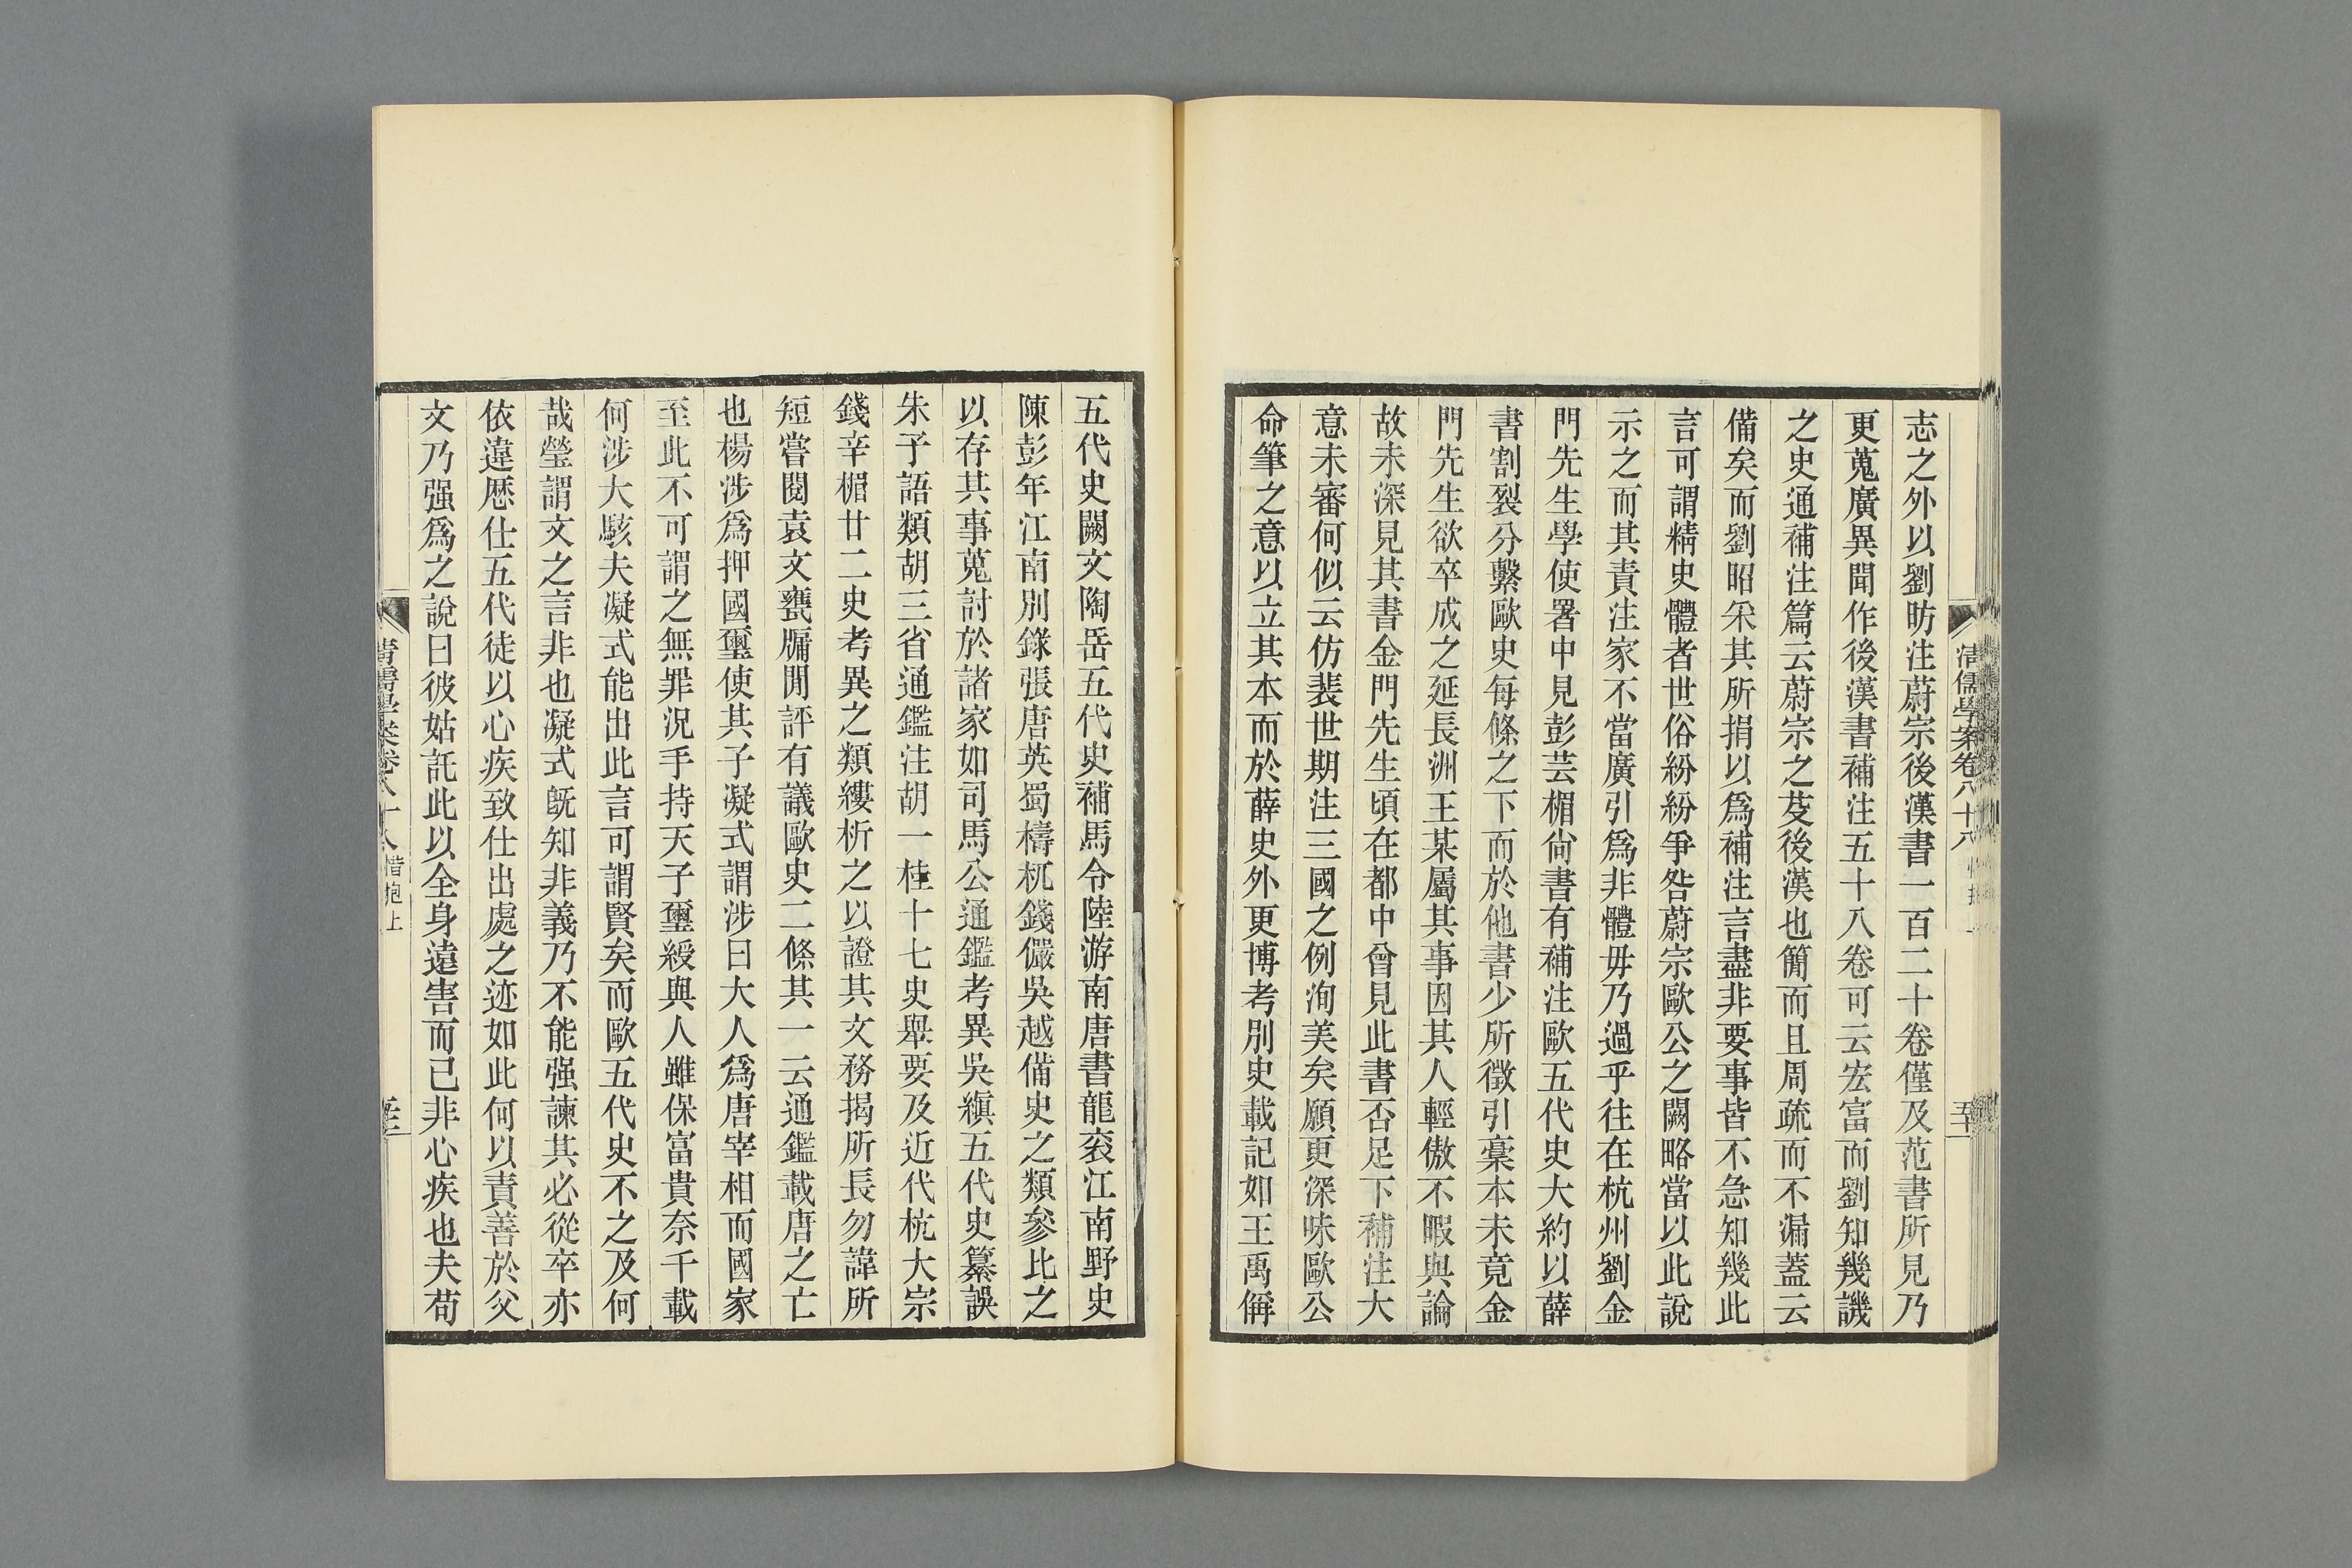 志之外以劉昉注蔚宗後漢書一百二十卷僅及范書所見乃
更蒐廣異聞作後漢書補注五十八卷可云宏富而劉知幾譏
之史通補注篇云蔚宗之芟後漢也簡而且周疏而不漏蓋云
備矣而劉昭采其所捐以爲補注言盡非要事皆不急知幾此
言可謂精史體者世俗紛紛爭咎蔚宗歐公之闕略當以此說
示之而其責注家不當廣引爲非體毋乃過乎往在杭州劉金
門先生學使署中見彭芸楣尙書有補注歐五代史大約以薛
書割裂分繫歐史每條之下而於他書少所徵引稾本未竟金
門先生欲卒成之延長洲王某屬其事因其人輕傲不暇與論
故未深見其書金門先生頃在都中曾見此書否足下補注大
意未審何似云仿裴世期注三國之例洵美矣願更深味歐公
命筆之意以立其本而於薛史外更博考別史載記如王禹偁
清儒學案卷八十八
五代史闕文陶岳五代史補馬令陸游南唐書龍袞江南野史
陳彭年江南別錄張唐英蜀檮杌錢儼吳越備史之類參比之
以存其事蒐討於諸家如司馬公通鑑考異吳縝五代史纂誤
朱子語類胡三省通鑑注胡一桂十七史舉要及近代杭大宗
錢辛楣廿二史考異之類縷析之以證其文務揭所長勿諱所
短嘗閱袁文甕牖閒評有議歐史二條其一云通鑑載唐之亡
也楊涉爲押國璽使其子凝式謂涉曰大人爲唐宰相而國家
至此不可謂之無罪況手持天子璽綬與人雖保富貴奈千載
何涉大駭夫凝式能出此言可謂賢矣而歐五代史不之及何
哉瑩謂文之言非也凝式旣知非義乃不能强諫其必從卒亦
依違歷仕五代徒以心疾致仕出處之迹如此何以責善於父
文乃强爲之說曰彼姑託此以全身遠害而已非心疾也夫苟
清儒學案卷八十八 惜抱上